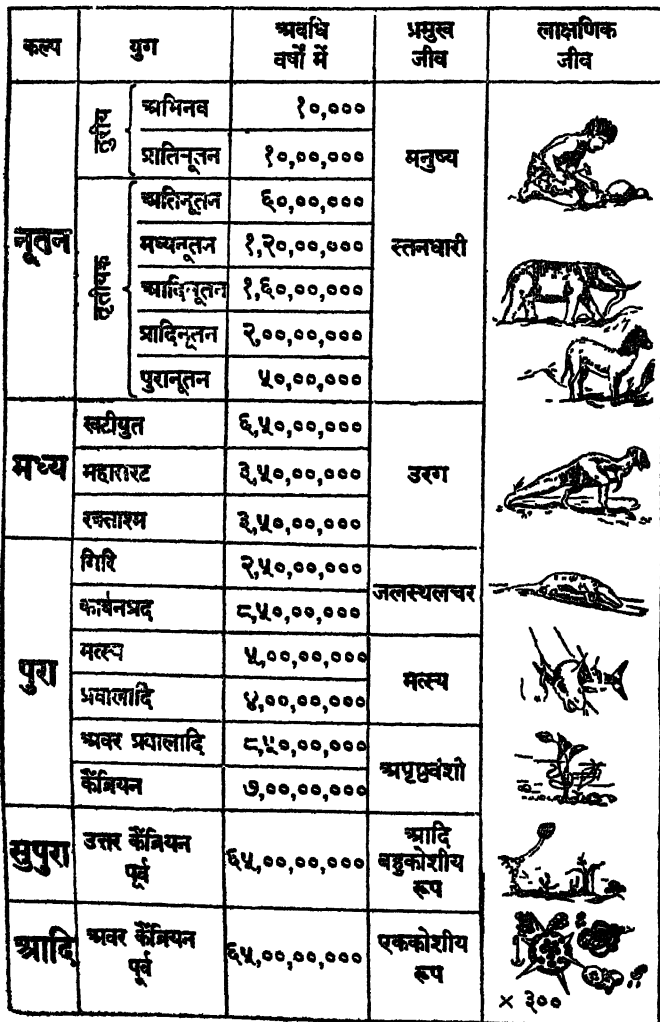 कल्प युग अवधि वर्षों में प्रमुख जीव लाक्षणिक जीव
नूतन
तुरीय
अभिनव १०,०००
प्रातिनूतन १०,००,०००
मनुष्य
तृतीयक
अतिनूतन ६०,००,०००
मध्यनूतन १,२०,००,००० स्तनधारी
आदिनूतन १,६०,००,०००
प्रादिनूतन २,००,००,०००
पुरानूतन ५०,००,०००
मध्य
खटीयुत ६,५०,००,०००
महासरट ३,५०,००,००० उरग
रक्ताश्म ३,५०,००,०००
पुरा
गिरि २,५०,००,०००
जलस्थलचर
कार्बनप्रद ८,५०,००,०००
मत्स्य ५,००,००,०००
मत्स्य
प्रवालादि ४,००,००,०००
अवर प्रवालादि ८,५०,००,०००
अपृष्ठवंशी
कैंब्रियन ७,००,००,०००
सुपुरा उत्तर कैंब्रियन पूर्व ६५,००,००,००० आदि बहुकोशीय रूप
आदि अवर कैंब्रियन पूर्व ६५,००,००,००० एककोशीय रूप
× ३००